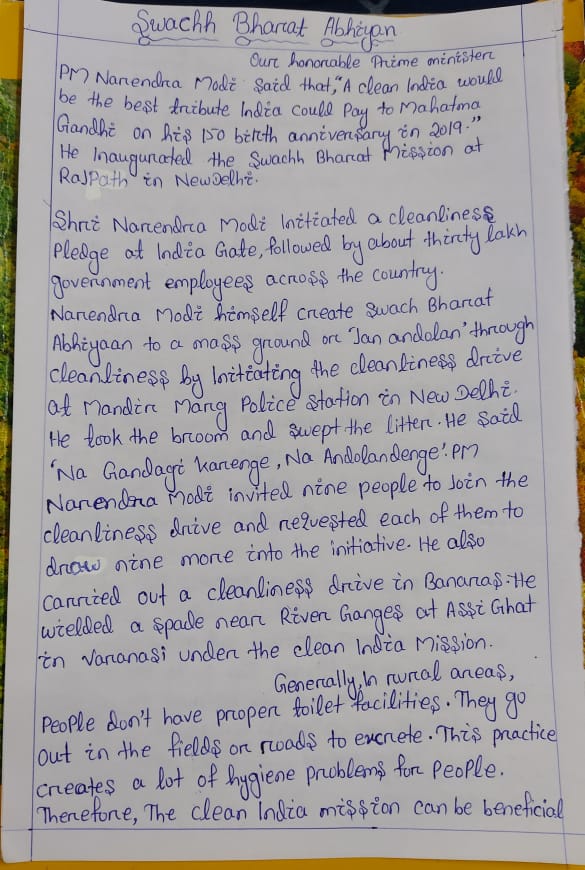 Swachh Bharat Abhiyan
Our honorable Prime minister
PM Narendra Modi Said that,"A clean India would
be the best tribute India Could Pay to Mahatma
Gandhi on his 150 birth anniversary in 2019."
He Inaugurated the Swachh Bharat Mission at
RajPath in NewDelhi.
Shri Narendra Modi Initiated a cleanliness
Pledge at India Gate, followed by about thirty lakh
government employees across the country.
Narendra Modi himself create Swach Bharat
Abhiyaan to a mass ground or 'Jan andolan' through
cleanliness by Initiating the cleanliness drive
at Mandir Marg Police Station in New Delhi.
He took the broom and swept the litter. He Said
'Na Gandagi karenge, Na Andolandenge'. PM
Narendra Modi invited nine people to Join the
cleanliness drive and requested each of them to
draw nine more into the initiative. He also
Carried out a cleanliness drive in Banaras. He
wielded a spade near River Ganges at Assi Ghat
in Varanasi under the clean India Mission.
Generally, In rural areas,
People don't have proper toilet facilities. They go
out in the fields or roads to excrete. This practice
creates a lot of hygiene problems for People.
Therefore, The clean India mission can be beneficial